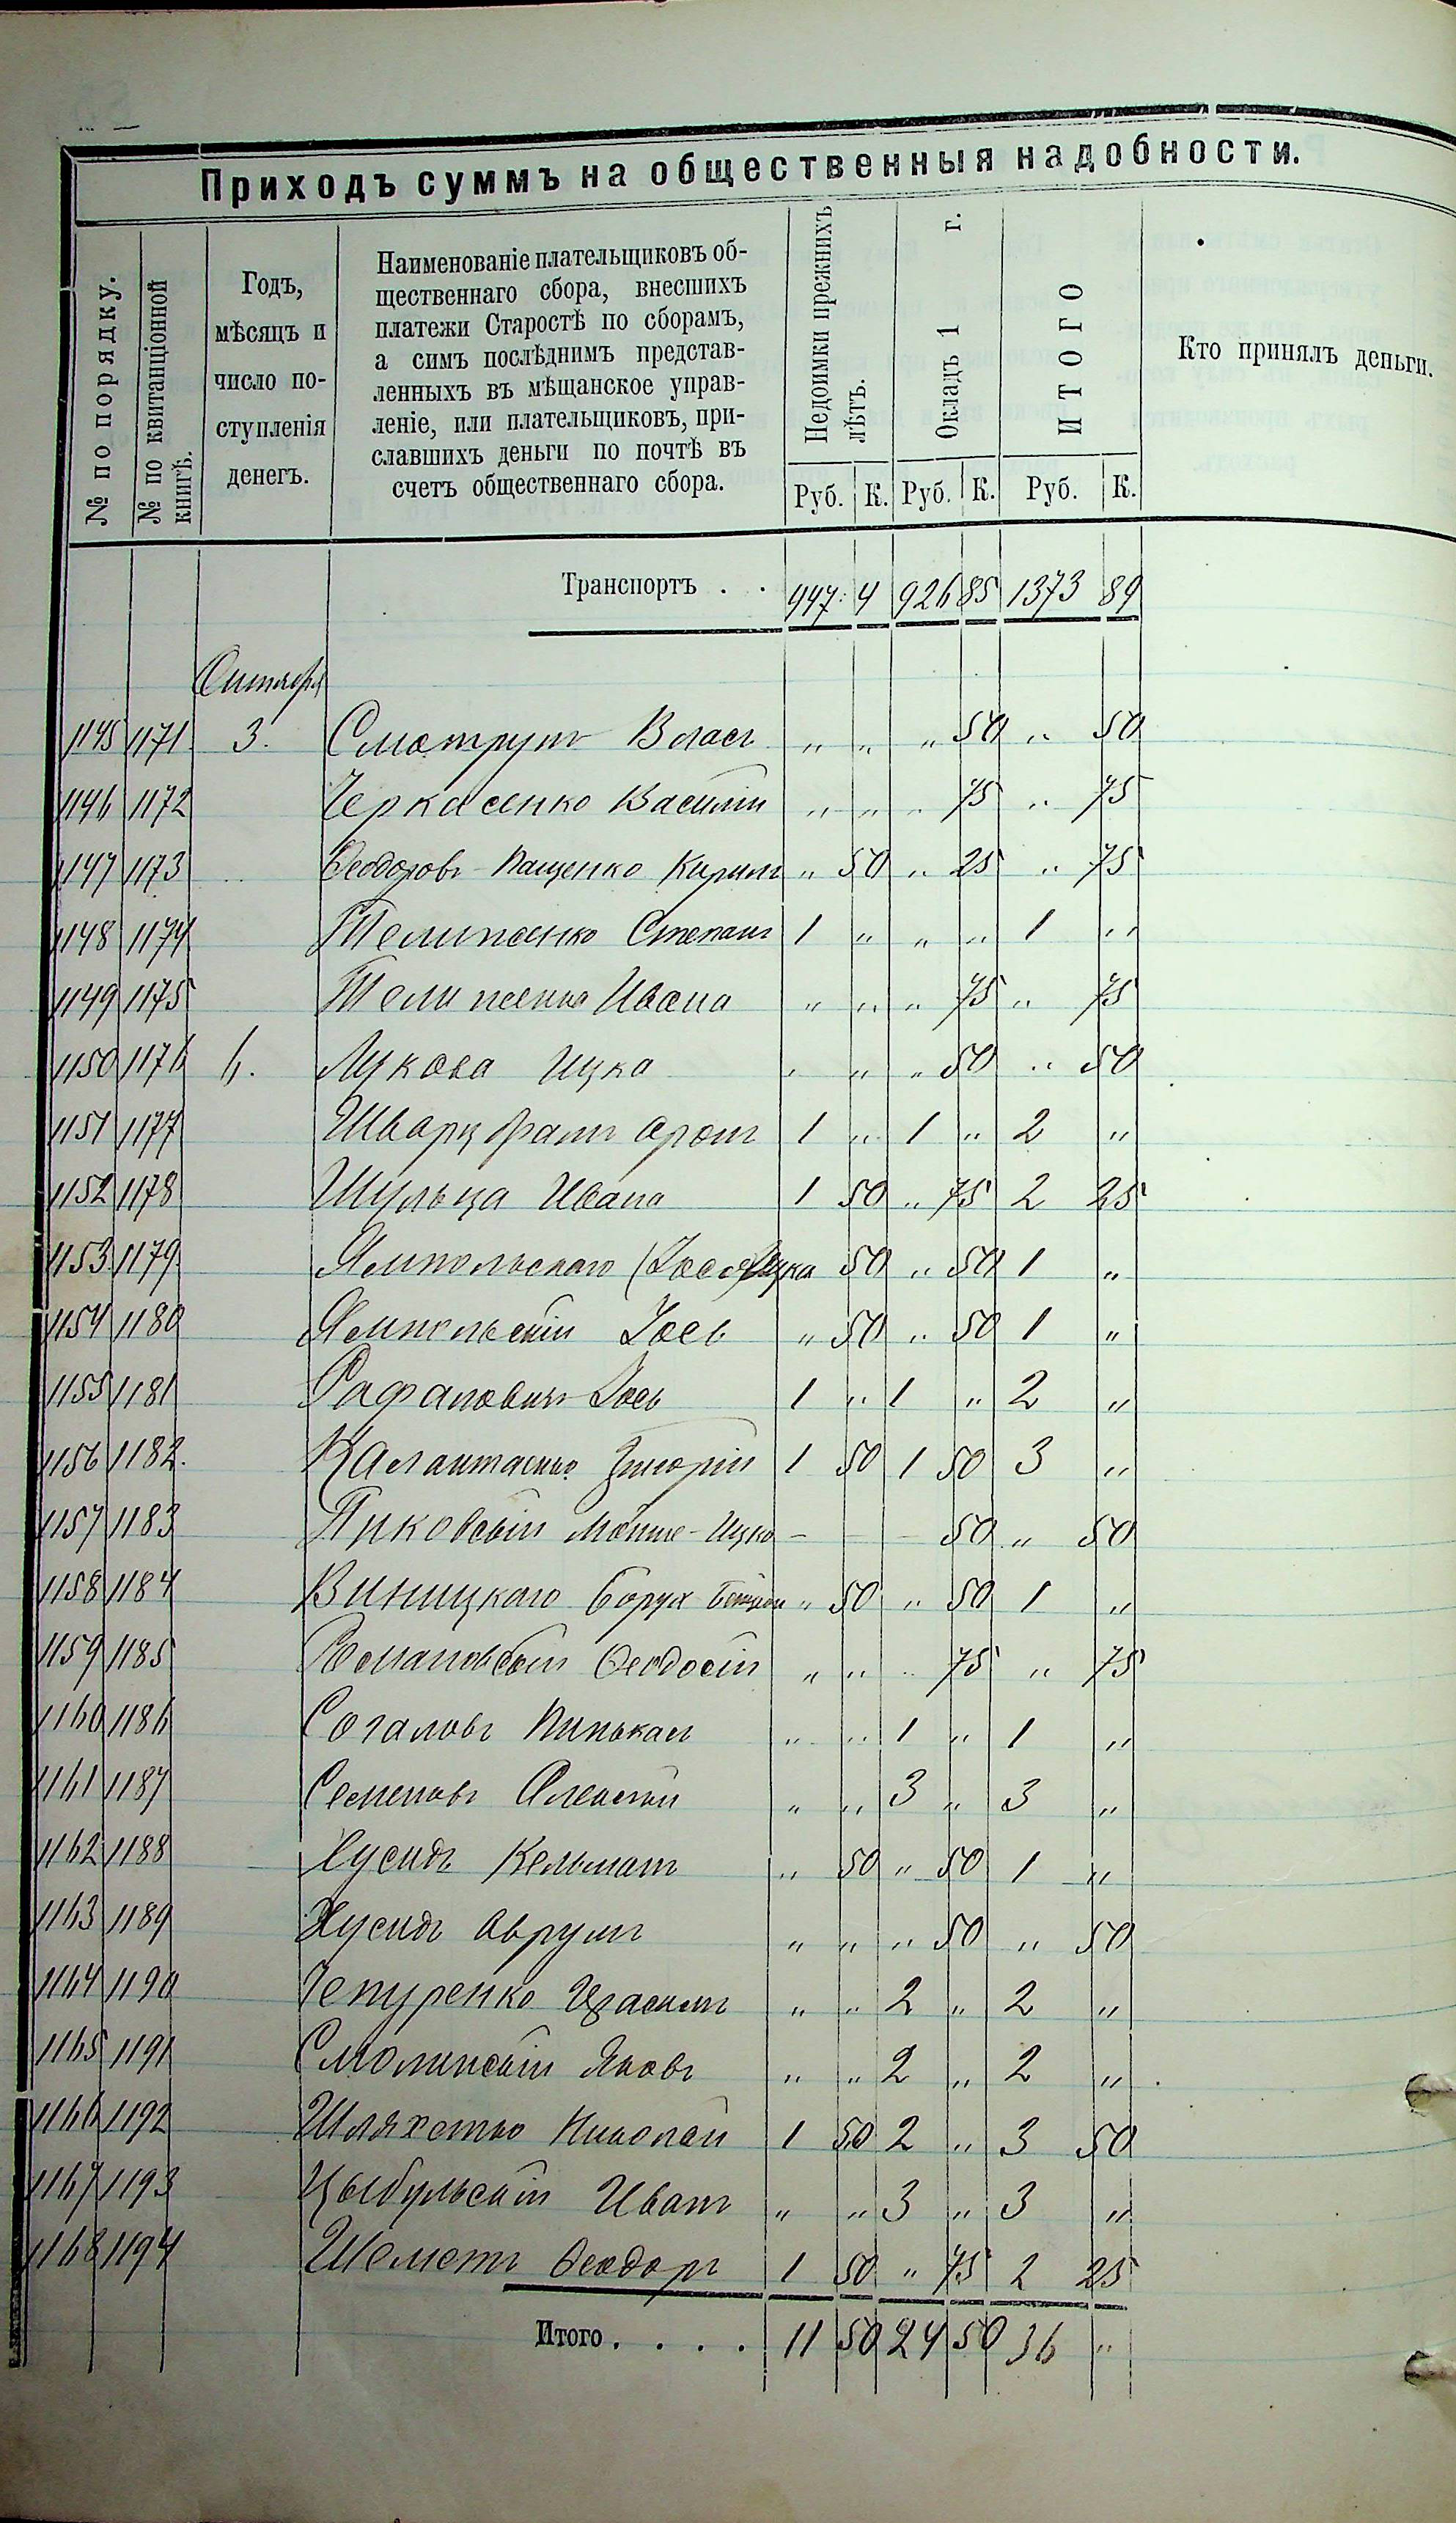 Приходъ суммъ на общественныя надобности.
№ по порядку.
№ по квитанціонной книгѣ.
Годъ,
мѣсяцъ и
число по-
ступленія
денегъ.
Наименованіе плательщиковъ об-
щественнаго сбора, внесшихъ
платежи Старостѣ по сборамъ,
а симъ послѣднимъ представ-
ленныхъ въ мѣщанское управ-
леніе, или плательщиковъ, при-
славшихъ деньги по почтѣ въ
счетъ общественнаго сбора.
Недоимки прежнихъ лѣтъ.
Окладъ 1 г.
ИТОГО
Кто принялъ деньги.
Руб. К. Руб. К. Руб. К.
Транспортъ . . 447 4 926 85 1373 89
Октября
1145 1171 3. Смотрущ Власъ „ „ „ 50 „ 50
1146 1172 Черкасенко Василій „ „ „ 75 „ 75
1147 1173 Ѳеодоровъ-Пащенко Кирилъ „ 50 „ 25 „ 75
1148 1174 Телипенко Степанъ 1 „ „ „ 1 „
1149 1175 Телипенко Ивана „ „ „ 75 „ 75
1150 1176 6. Лукова Ицка „ „ „ 50 „ 50
1151 1177 Шварцфалъ Аронъ 1 „ 1 „ 2 „
1152 1178 Шульца Ивана 1 50 „ 75 2 25
1153 1179 Ямпольскаго Іося Ицка 50 „ 50 1 „
1154 1180 Ямпольскій Іось „ 50 „ 50 1 „
1155 1181 Рафаловичъ Іось 1 „ 1 „ 2 „
1156 1182. Калантаенко Григорій 1 50 1 50 3 „
1157 1183 Пиковскій Мошко-Ицко - - - 50 „ 50
1158 1184 Виницкаго Борух „ 50 „ 50 1 „
1159 1185 Романовскій Ѳеодосій „ „ „ 75 „ 75
1160 1186 Согаловъ Пинькас „ „ 1 „ 1 „
1161 1187 Семеновъ Алексѣй „ „ 3 „ 3 „
1162 1188 Хусидъ Кельманъ „ 50 „ 50 1 „
1163 1189 Хусидъ Аврумъ „ „ „ 50 „ 50
1164 1190 Чепуренко Герасимъ „ „ 2 „ 2 „
1165 1191 Смолинскій Яковъ „ „ 2 „ 2 „
1166 1192 Шляхетко Николай 1 50 2 „ 3 50
1167 1193 Цыбульскій Иванъ „ „ 3 „ 3 „
1168 1194 Шеметъ Ѳеодоръ 1 50 „ 75 2 25
Итого . . . . 11 50 24 50 36 „